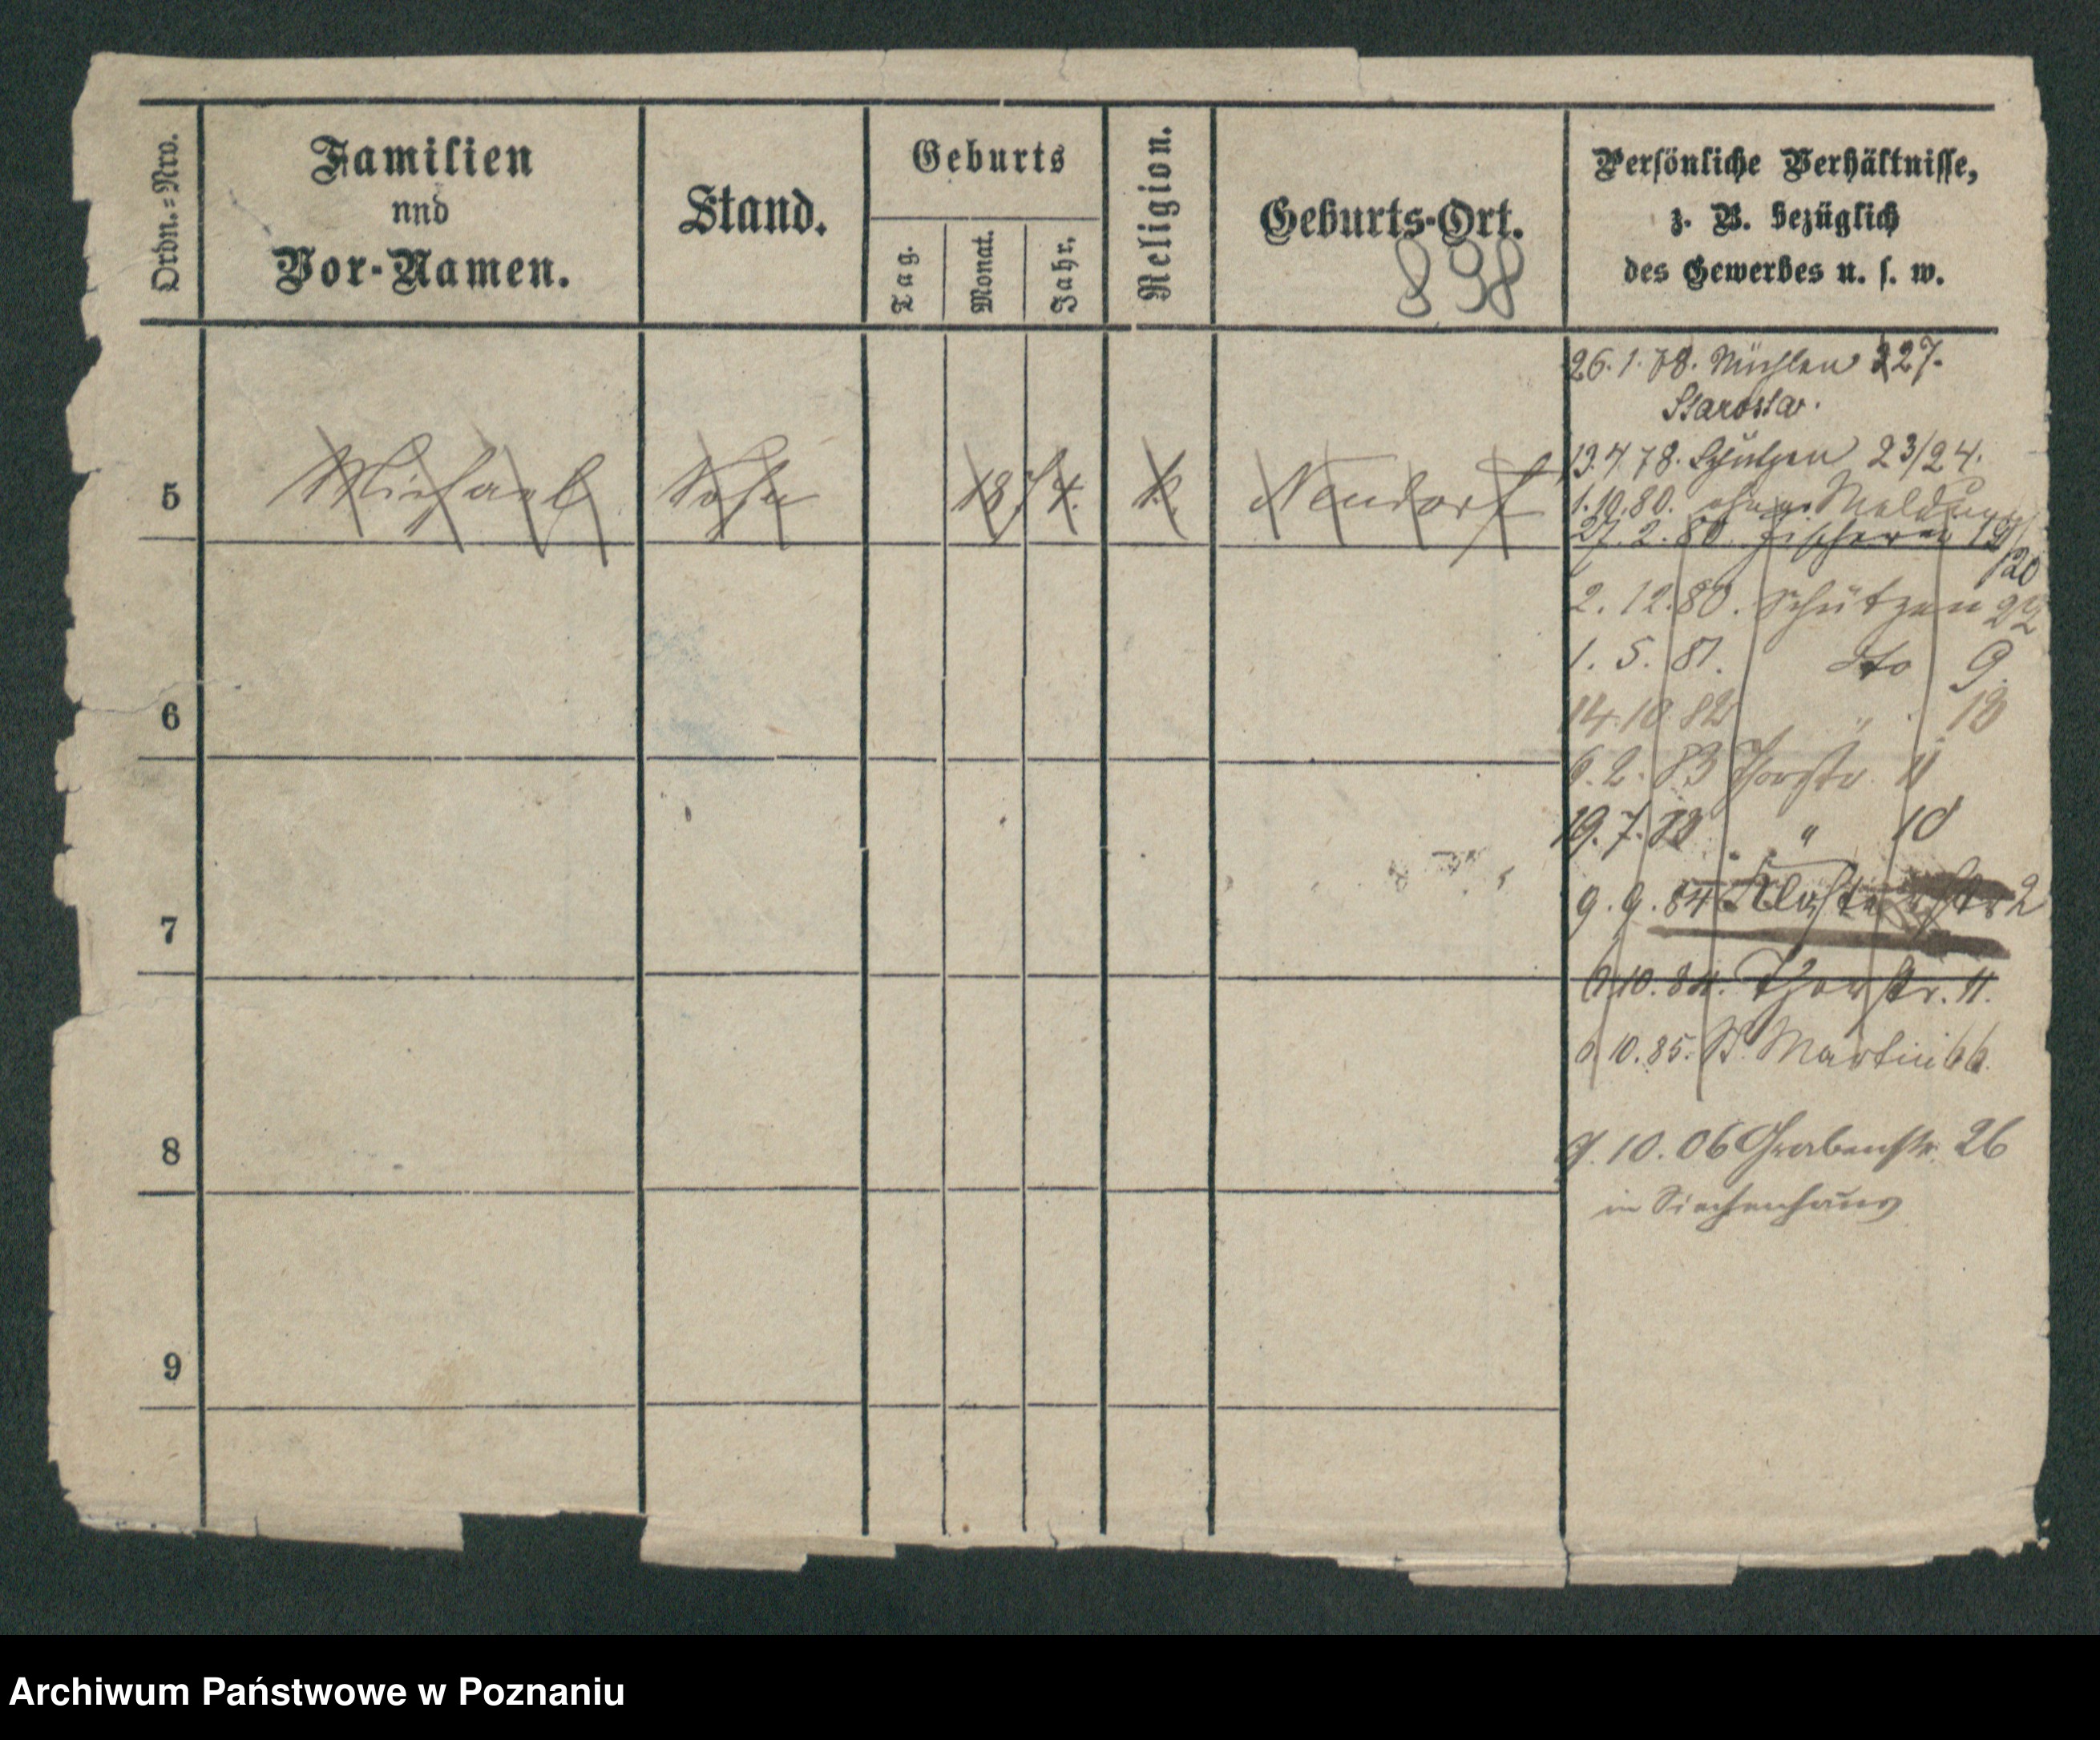 Ordn.=Nro.
Familien
und
Vor-Namen.
Stand.
Geburts
Tag.
Monat.
Jahr.
Religion.
Geburts-Ort.
898
Persönliche Verhältnisse,
z. B. bezüglich
des Gewerbes u. s. w.
5
Michael
Sohn
1874.
k.
Neudorf
26. 1. 78. Mühlen 227.
Starosta.
13. 4. 78. Schützen 23/24.
1. 10. 80. ohne Meldung
27. 2. 80. Fischerei 19/20
2. 12. 80. Schützen 22
1. 5. 81. dto 9.
14. 10. 82 " 13
6. 2. 83 Thorstr. 11
19. 7. 83 " 10
9. 9. 84 Klosterstr 2
10. 84. Thorstr. 11.
10. 85. St. Martin 66.
10. 06 Grabenstr. 26
in Siechenhaus
6
7
8
9
Archiwum Państwowe w Poznaniu